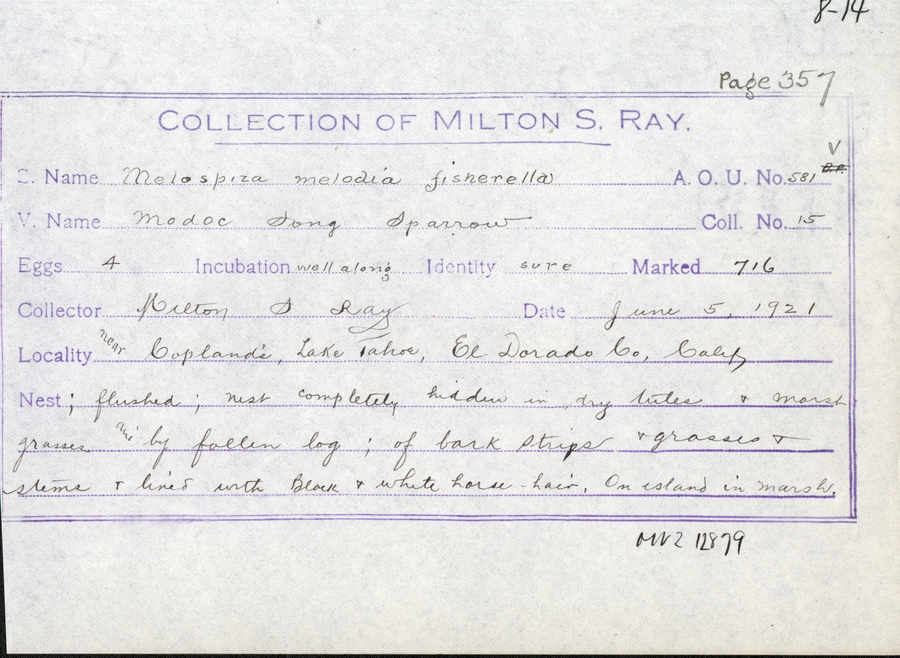 8-14
Page 357
COLLECTION OF MILTON S. RAY.
S. Name Melospiza melodia fisherella A. O. U. No. 581
V. Name Modoc Song Sparrow Coll. No. 15
Eggs 4 Incubation well along Identity sure Marked 716
Collector Milton S Ray Date June 5, 1921
Locality near Copland's, Lake Tahoe, El Dorado Co, Calif
Nest; flushed; nest completely hidden in dry tules & marsh
grasses and by fallen log; of bark strips & grasses &
stems & lined with Black & white horse-hair. On island in marsh.
MVZ 12879